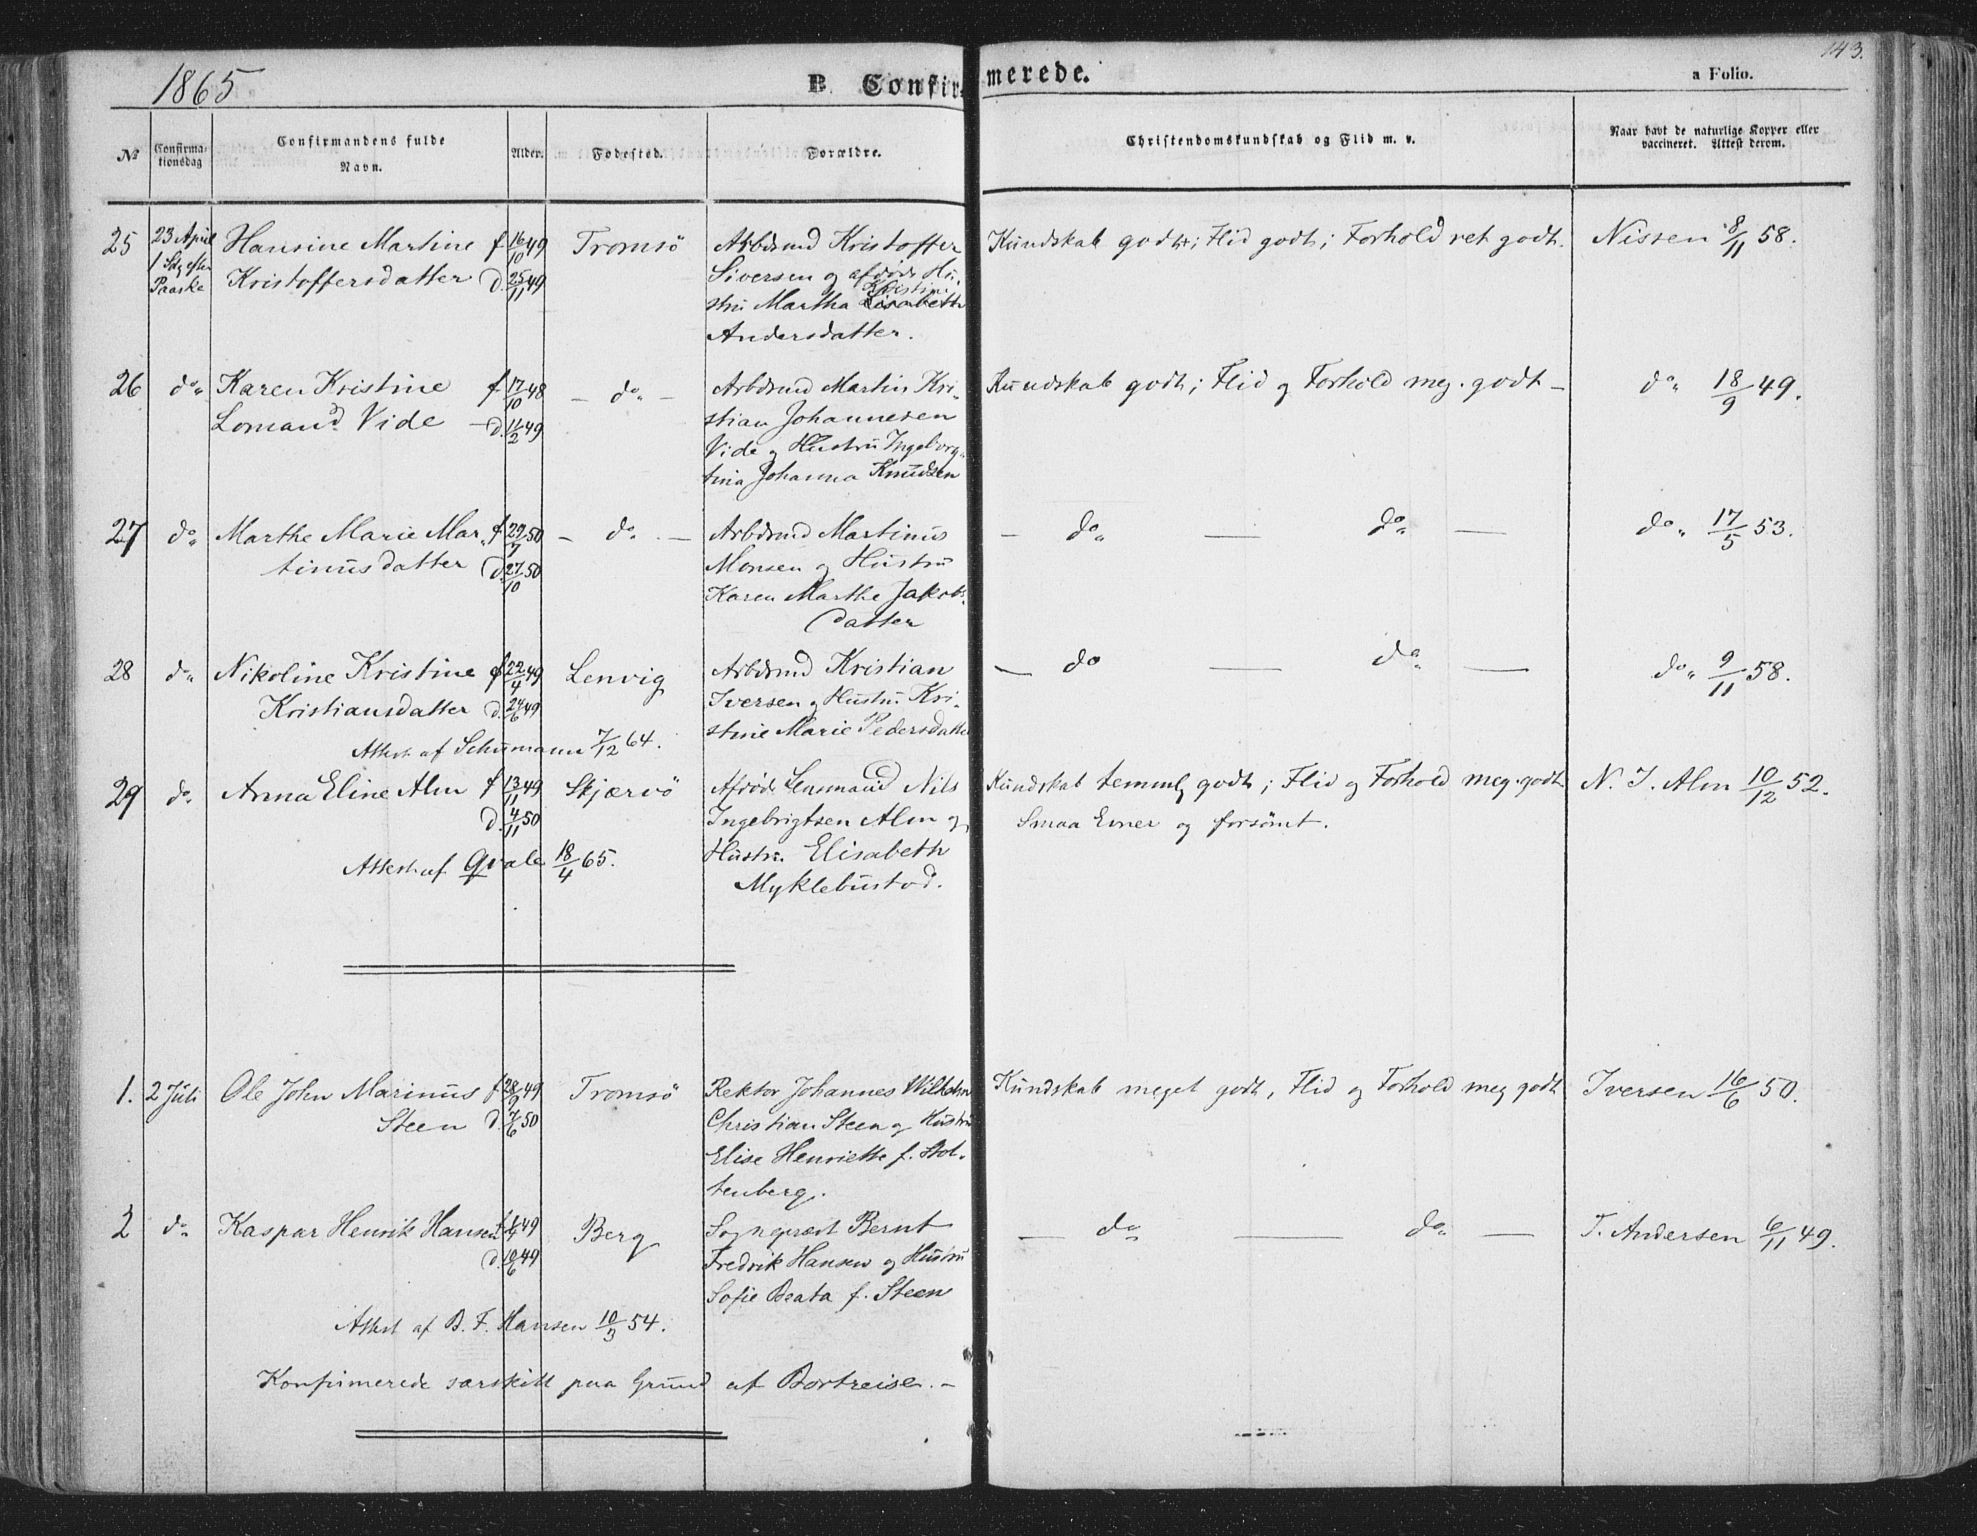 143.
1865
B. Confirmerede.
a Folio.
No
Confirmationsdag
Confirmandens fulde Navn.
Alder.
Fodested.
Forældre.
Christendomskundskab og Flid m. v.
Naar havt de naturlige Kopper eller vaccineret. Attest derom.
25 23 April Hansine Martine f 16/10 49 Tromsö Arbdsmd Kristoffer Kundskab godt; Flid godt; Forhold ret godt. Nissen 8/11 58.
1 Sdg efter Kristoffersdatter d. 25/11 49 Siversen og afdøde Hu-
Paaske Kristine
stru Martha Lisabeth
Andersdatter.
26 do„ Karen Kristine f 17/10 48 – do„ – Arbdsmd Martin Kri- Kundskab godt; Flid og Forhold meg. godt – do„ 18/9 49.
Lomand Vide – d. 11/2 49 stian Johannesen
Vide og Hustru Ingeborg-
tina Johanna Knudsen
27 do„ Marthe Marie Mar- f 29/7 50 – do„ – Arbdsmd Martinus – do„ — do„ — do„ 17/5 53.
tinusdatter d. 27/10 50 Monsen og Hustru
Karen Marthe Jakobs-
datter
28 do„ Nikoline Kristine f 22/4 49 Lenvig Arbdsmd Kristian – do — do„ — do„ 9/11 58.
Kristiansdatter d. 24/6 49 Iversen og Hustru Kri-
stine Marie Pedersdatter
Attest af Schumann 7/12 64.
29 do„ Anna Eline Alm f 13/11 49 Skjærvö Afdøde Lensmand Nils Kundskab temmlg godt; Flid og Forhold meg. godt N. I. Alm 10/12 52.
d. 4/11 50 Ingebrigtsen Alm og Smaa Evner og forsömt.
Attest af Qvale 18/4 65. Hustru Elisabeth
Myklebustad.
1. 2 Juli Ole John Marinus f 28/9 49 Tromsö Rektor Johannes Wilhelm Kundskab meget godt, Flid og Forhold meg godt Iversen 16/6 50.
Steen d. 7/6 50 Christian Steen og Hustru
Elise Henriette f. Stol-
tenberg.
2 do„ Kaspar Henrik Hansen 49 Berg Sogneprest Bernt – do„ — do„ — T. Andersen 6/11 49.
d. 10/6 49 Fredrik Hansen og Hustru
Sofie Beata f. Steen
Attest af B. F. Hansen 10/3 54.
Konfirmerede særskilt paa Grund af Bortreise. –